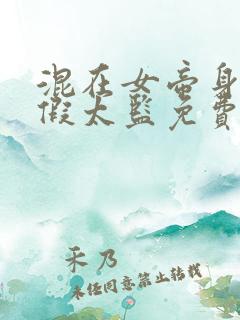 混在女帝身
假太监免費
禾乃
未任同意禁止转载